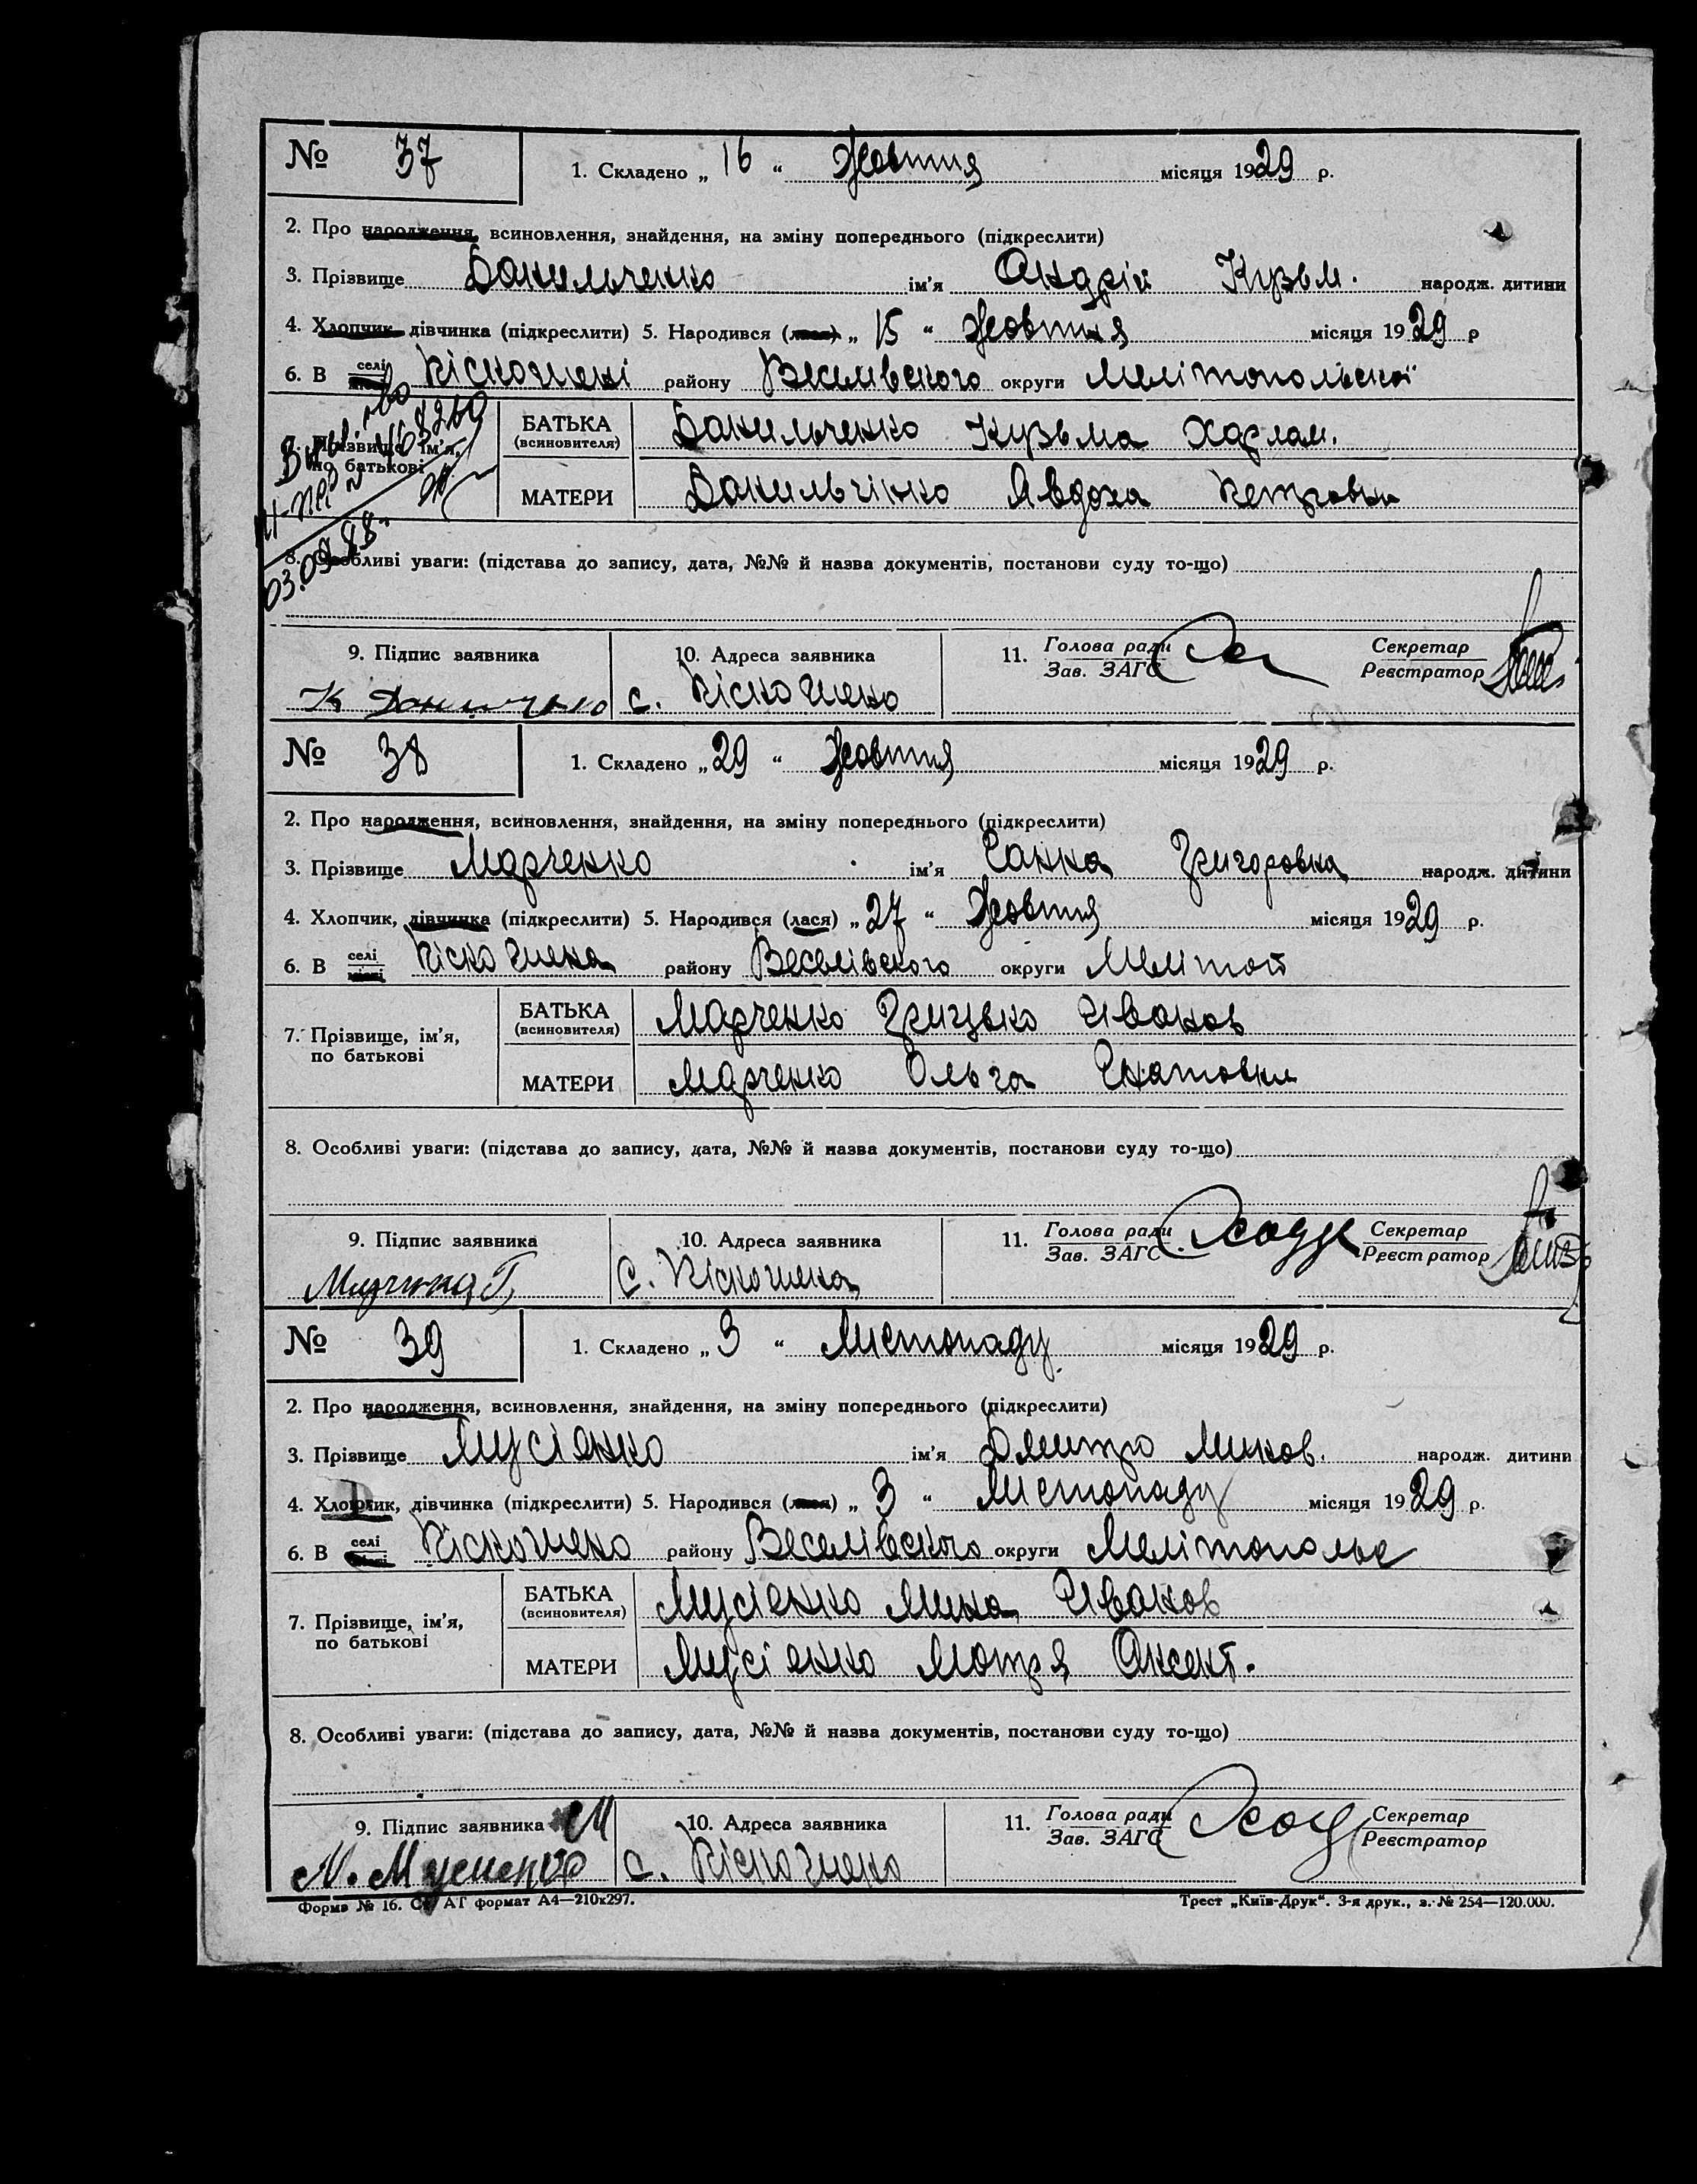 № 37 1. Складено „ 16 “ Жовтня місяця 1929 р.
2. Про народження, всиновлення, знайдення, на зміну попереднього (підкреслити)
3. Прізвище Данильченко ім’я Андрій Кузьм. народж. дитини
4. Хлопчик, дівчинка (підкреслити) 5. Народився (лася) „ 15 “ Жовтня місяця 1929 р
6. В селі місті Піскошині району Веселівского округи Мелітопольскої
7. Прізвище, ім’я, по батькові
БАТЬКА (всиновителя) Данильченко Кузьма Харлам.
МАТЕРИ Данильчінко Явдоха Петровна
03.09.83
8. Особливі уваги: (підстава до запису, дата, №№ й назва документів, постанови суду то-що)
9. Підпис заявника 10. Адреса заявника 11. Голова ради Зав. ЗАГС Секретар Реєстратор
К с. Піскошено
№ 38 1. Складено „ 29 “ Жовтня місяця 1929 р.
2. Про народження, всиновлення, знайдення, на зміну попереднього (підкреслити)
3. Прізвище Марченко ім’я Ганна Григоровна народж. дитини
4. Хлопчик, дівчинка (підкреслити) 5. Народився (лася) „ 27 “ Жовтня місяця 1929 р.
6. В селі місті Піскошена району Веселівского округи Мелітоп
7. Прізвище, ім’я, по батькові
БАТЬКА (всиновителя) Марченко Грицько Іванов
МАТЕРИ Марченко Ольга Гнатовна
8. Особливі уваги: (підстава до запису, дата, №№ й назва документів, постанови суду то-що)
9. Підпис заявника 10. Адреса заявника 11. Голова ради Зав. ЗАГС Секретар Реєстратор
с. Піскошена
№ 39 1. Складено „ 3 “ Листопаду місяця 1929 р.
2. Про народження, всиновлення, знайдення, на зміну попереднього (підкреслити)
3. Прізвище Мусіенко ім’я Дмитро Миков. народж. дитини
4. Хлопчик, дівчинка (підкреслити) 5. Народився (лася) „ 3 “ Листопаду місяця 1929 р.
6. В селі місті Піскошено району Веселівского округи Мелітопольс
7. Прізвище, ім’я, по батькові
БАТЬКА (всиновителя) Мусіенко Мина Іванов
МАТЕРИ Мусіенко Мотря Оксент.
8. Особливі уваги: (підстава до запису, дата, №№ й назва документів, постанови суду то-що)
9. Підпис заявника 10. Адреса заявника 11. Голова ради Зав. ЗАГС Секретар Реєстратор
М. Мусиенко с. Піскошено
Форма № 16. Ст. АГ формат А4—210х297. Трест „Київ-Друк“. 3-я друк., з. № 254—120.000.